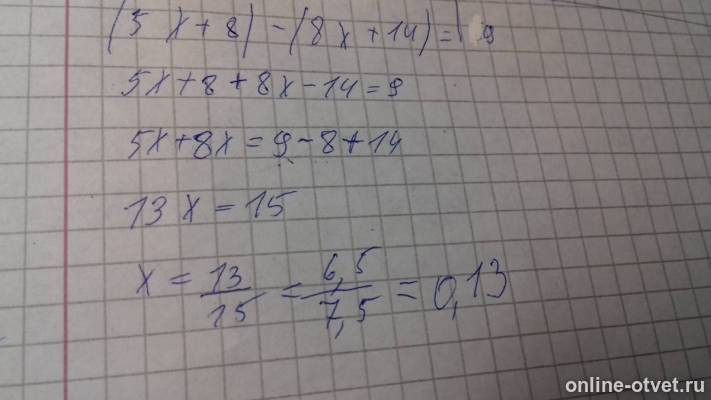 (5x+8)-(8x+14)=9
5x+8+8x-14=9
5x+8x=9-8+14
13x=15
x=13/15=6,5/7,5=0,13
online-otvet.ru